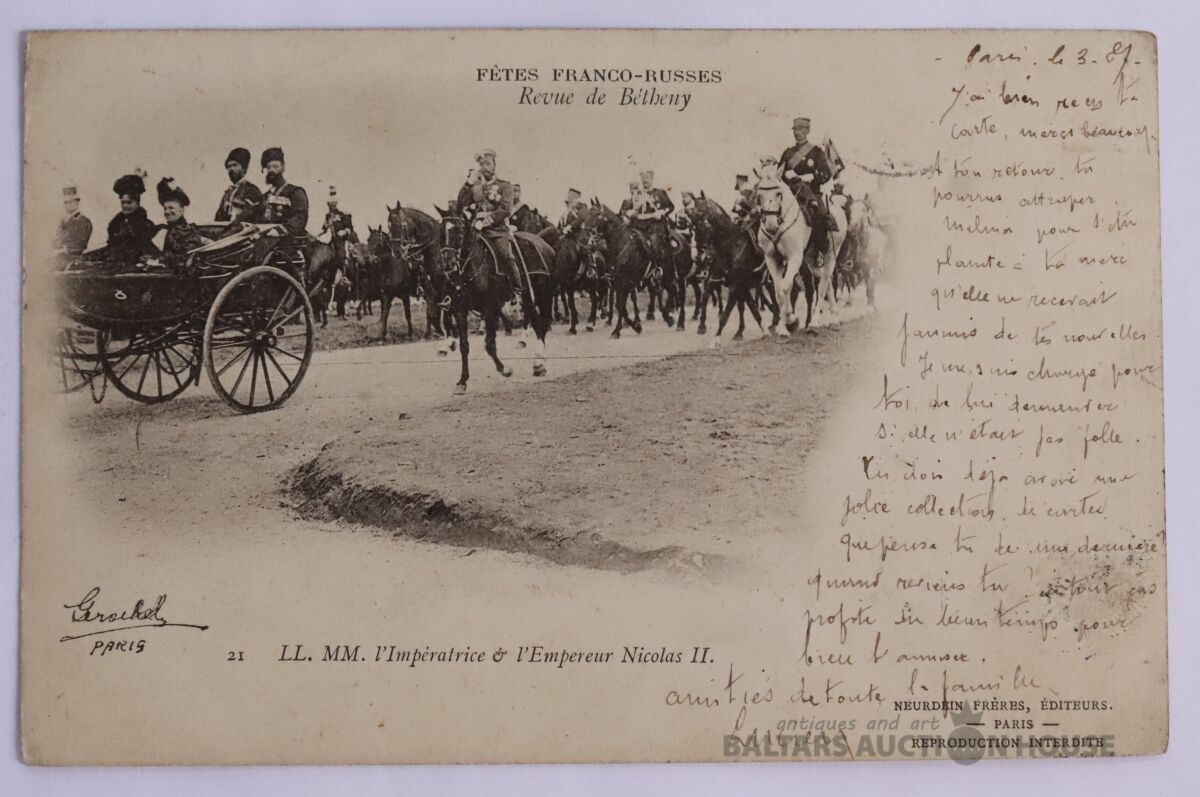 FÊTES FRANCO-RUSSES
Revue de Bétheny
Paris, le 3-
J'ai bien reçu ta
carte, merci beaucoup.
A ton retour, tu
pourras attraper
pour s'être
plainte à ta mère
qu'elle ne recevait
jamais de tes nouvelles.
Je me suis chargé pour
toi de lui demander
si elle n'était pas folle.
Tu dois déjà avoir une
jolie collection de cartes
que penses tu de ma dernière?
quand reviens tu? en tout cas
profite du beau temps pour
bien t'amuser.
amitiés de toute la famille
PARIS
21 LL. MM. l'Impératrice & l'Empereur Nicolas II.
NEURDEIN FRÈRES, ÉDITEURS.
— PARIS —
REPRODUCTION INTERDITE
antiques and art
BALTARS AUCTION HOUSE